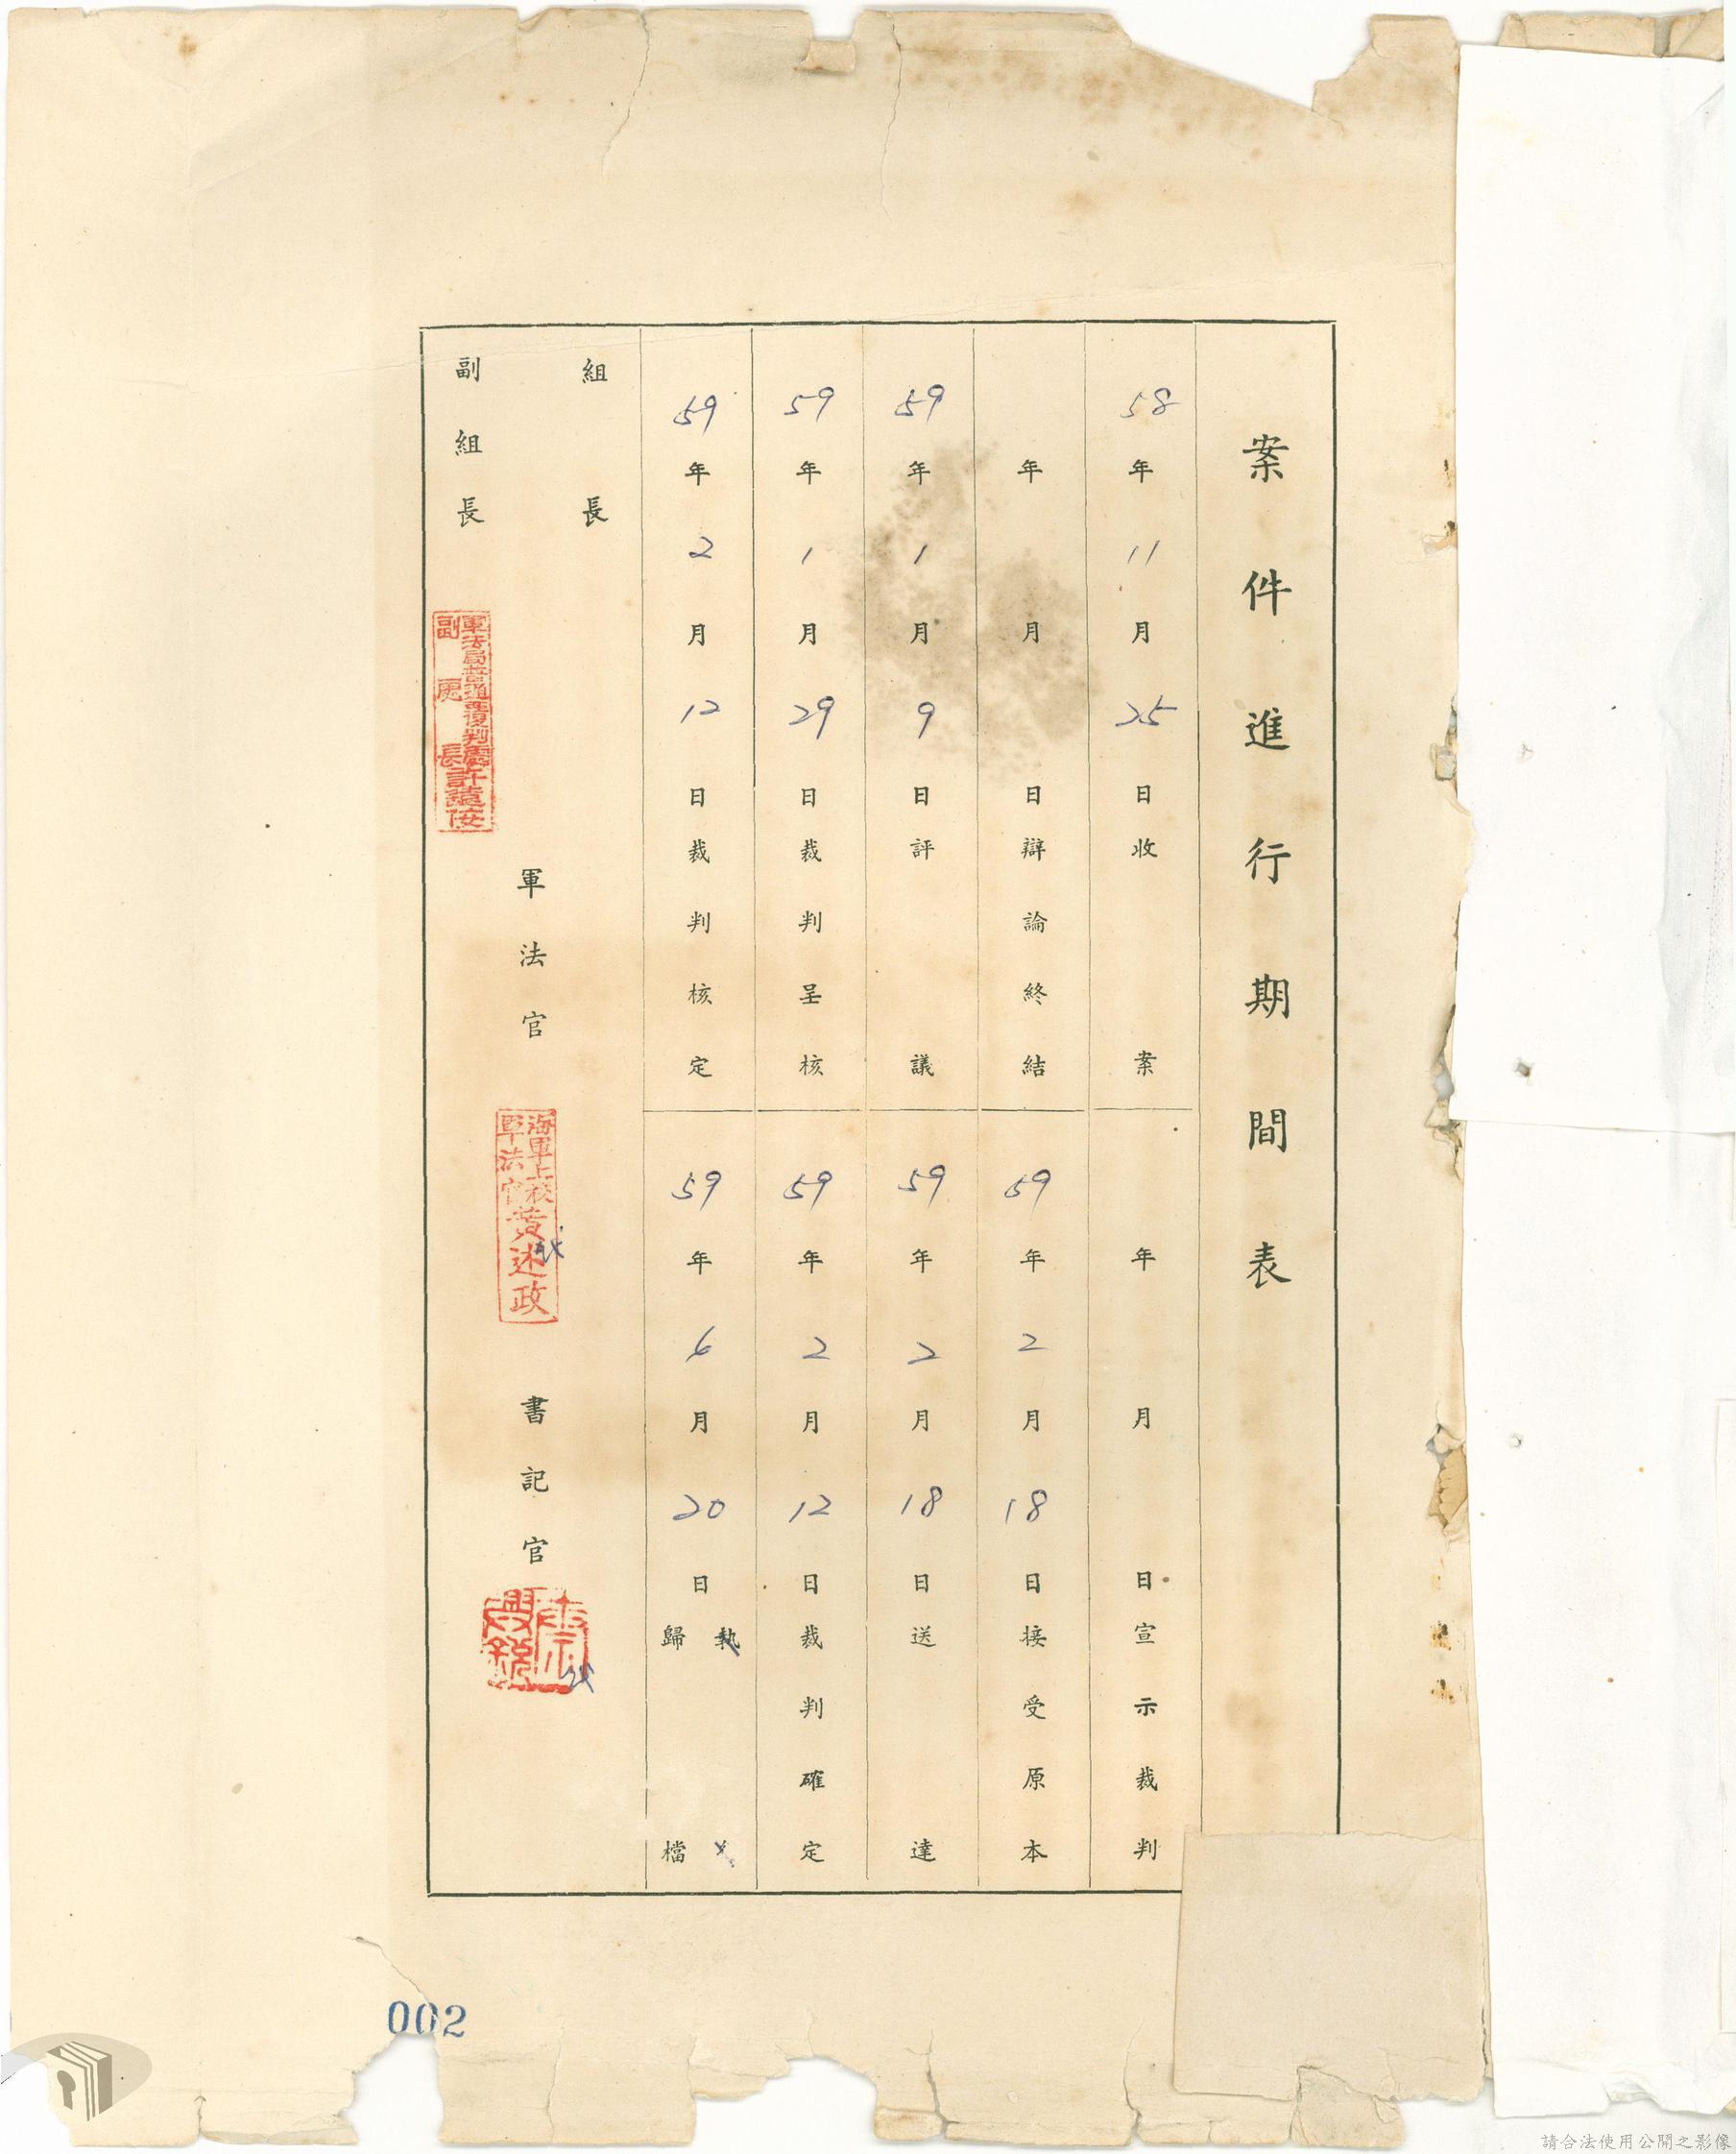 案件進行期間表
58年11月25日收案
年月日宣示裁判
年月日辯論終結
59年2月18日接受原本
59年1月9日評議
59年2月18日送達
59年1月29日裁判呈核
59年2月12日裁判確定
59年2月12日裁判核定
59年6月20日執
歸檔
組長
副組長
軍法局普通覆判庭
副庭長
軍法官
海軍上校
軍法官黃述政
書記官
002
請合法使用公開之影像